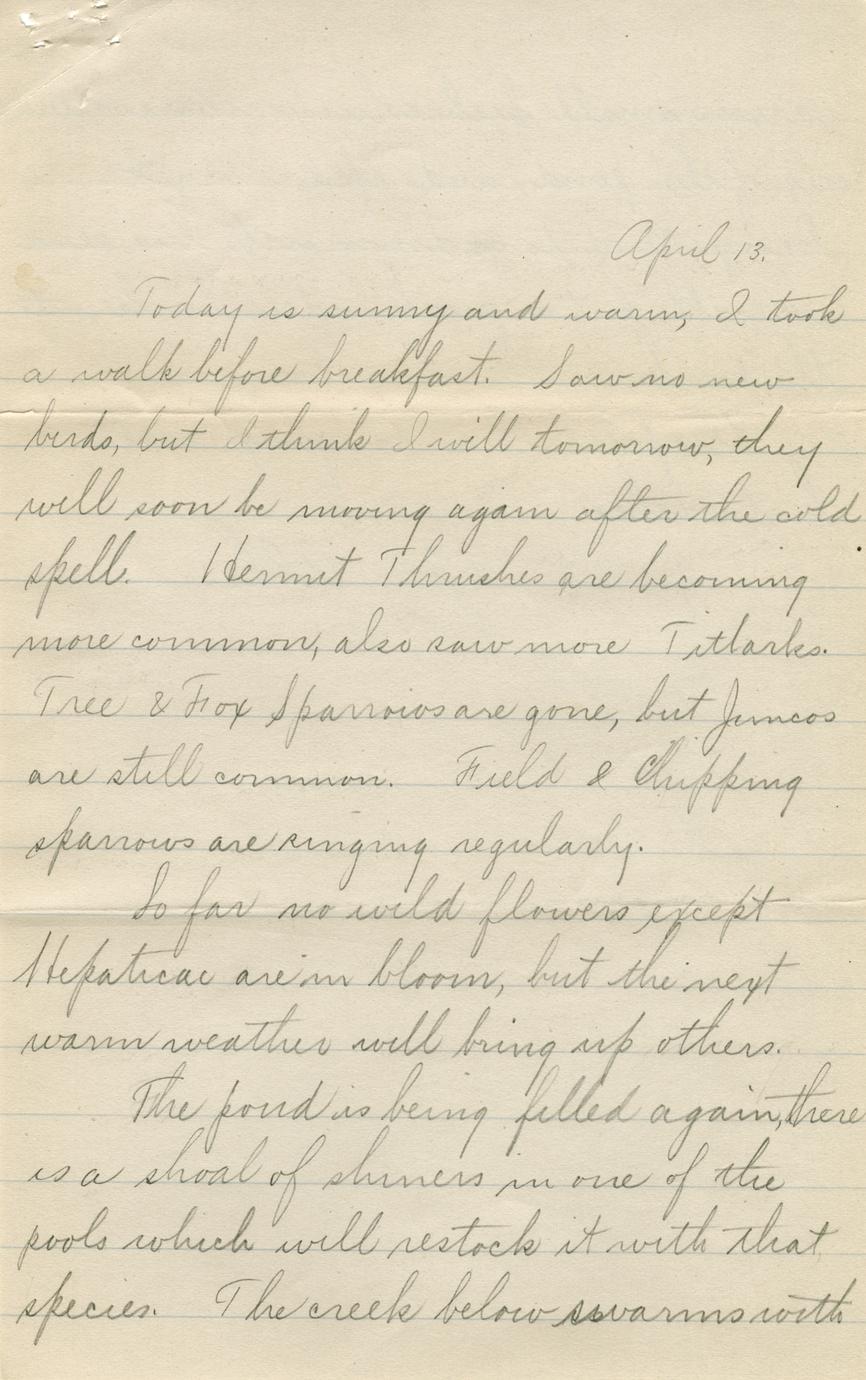 April 13.
Today is sunny and warm, I took
a walk before breakfast. Saw no new
birds, but I think I will tomorrow, they
will soon be moving again after the cold
spell. Hermit Thrushes are becoming
more common, also saw more Titlarks.
Tree & Fox Sparrows are gone, but Juncos
are still common. Field & Chipping
sparrows are singing regularly.
So far no wild flowers except
Hepaticae are in bloom, but the next
warm weather will bring up others.
The pond is being filled again, there
is a shoal of shiners in one of the
pools which will restock it with that
species. The creek below swarms with